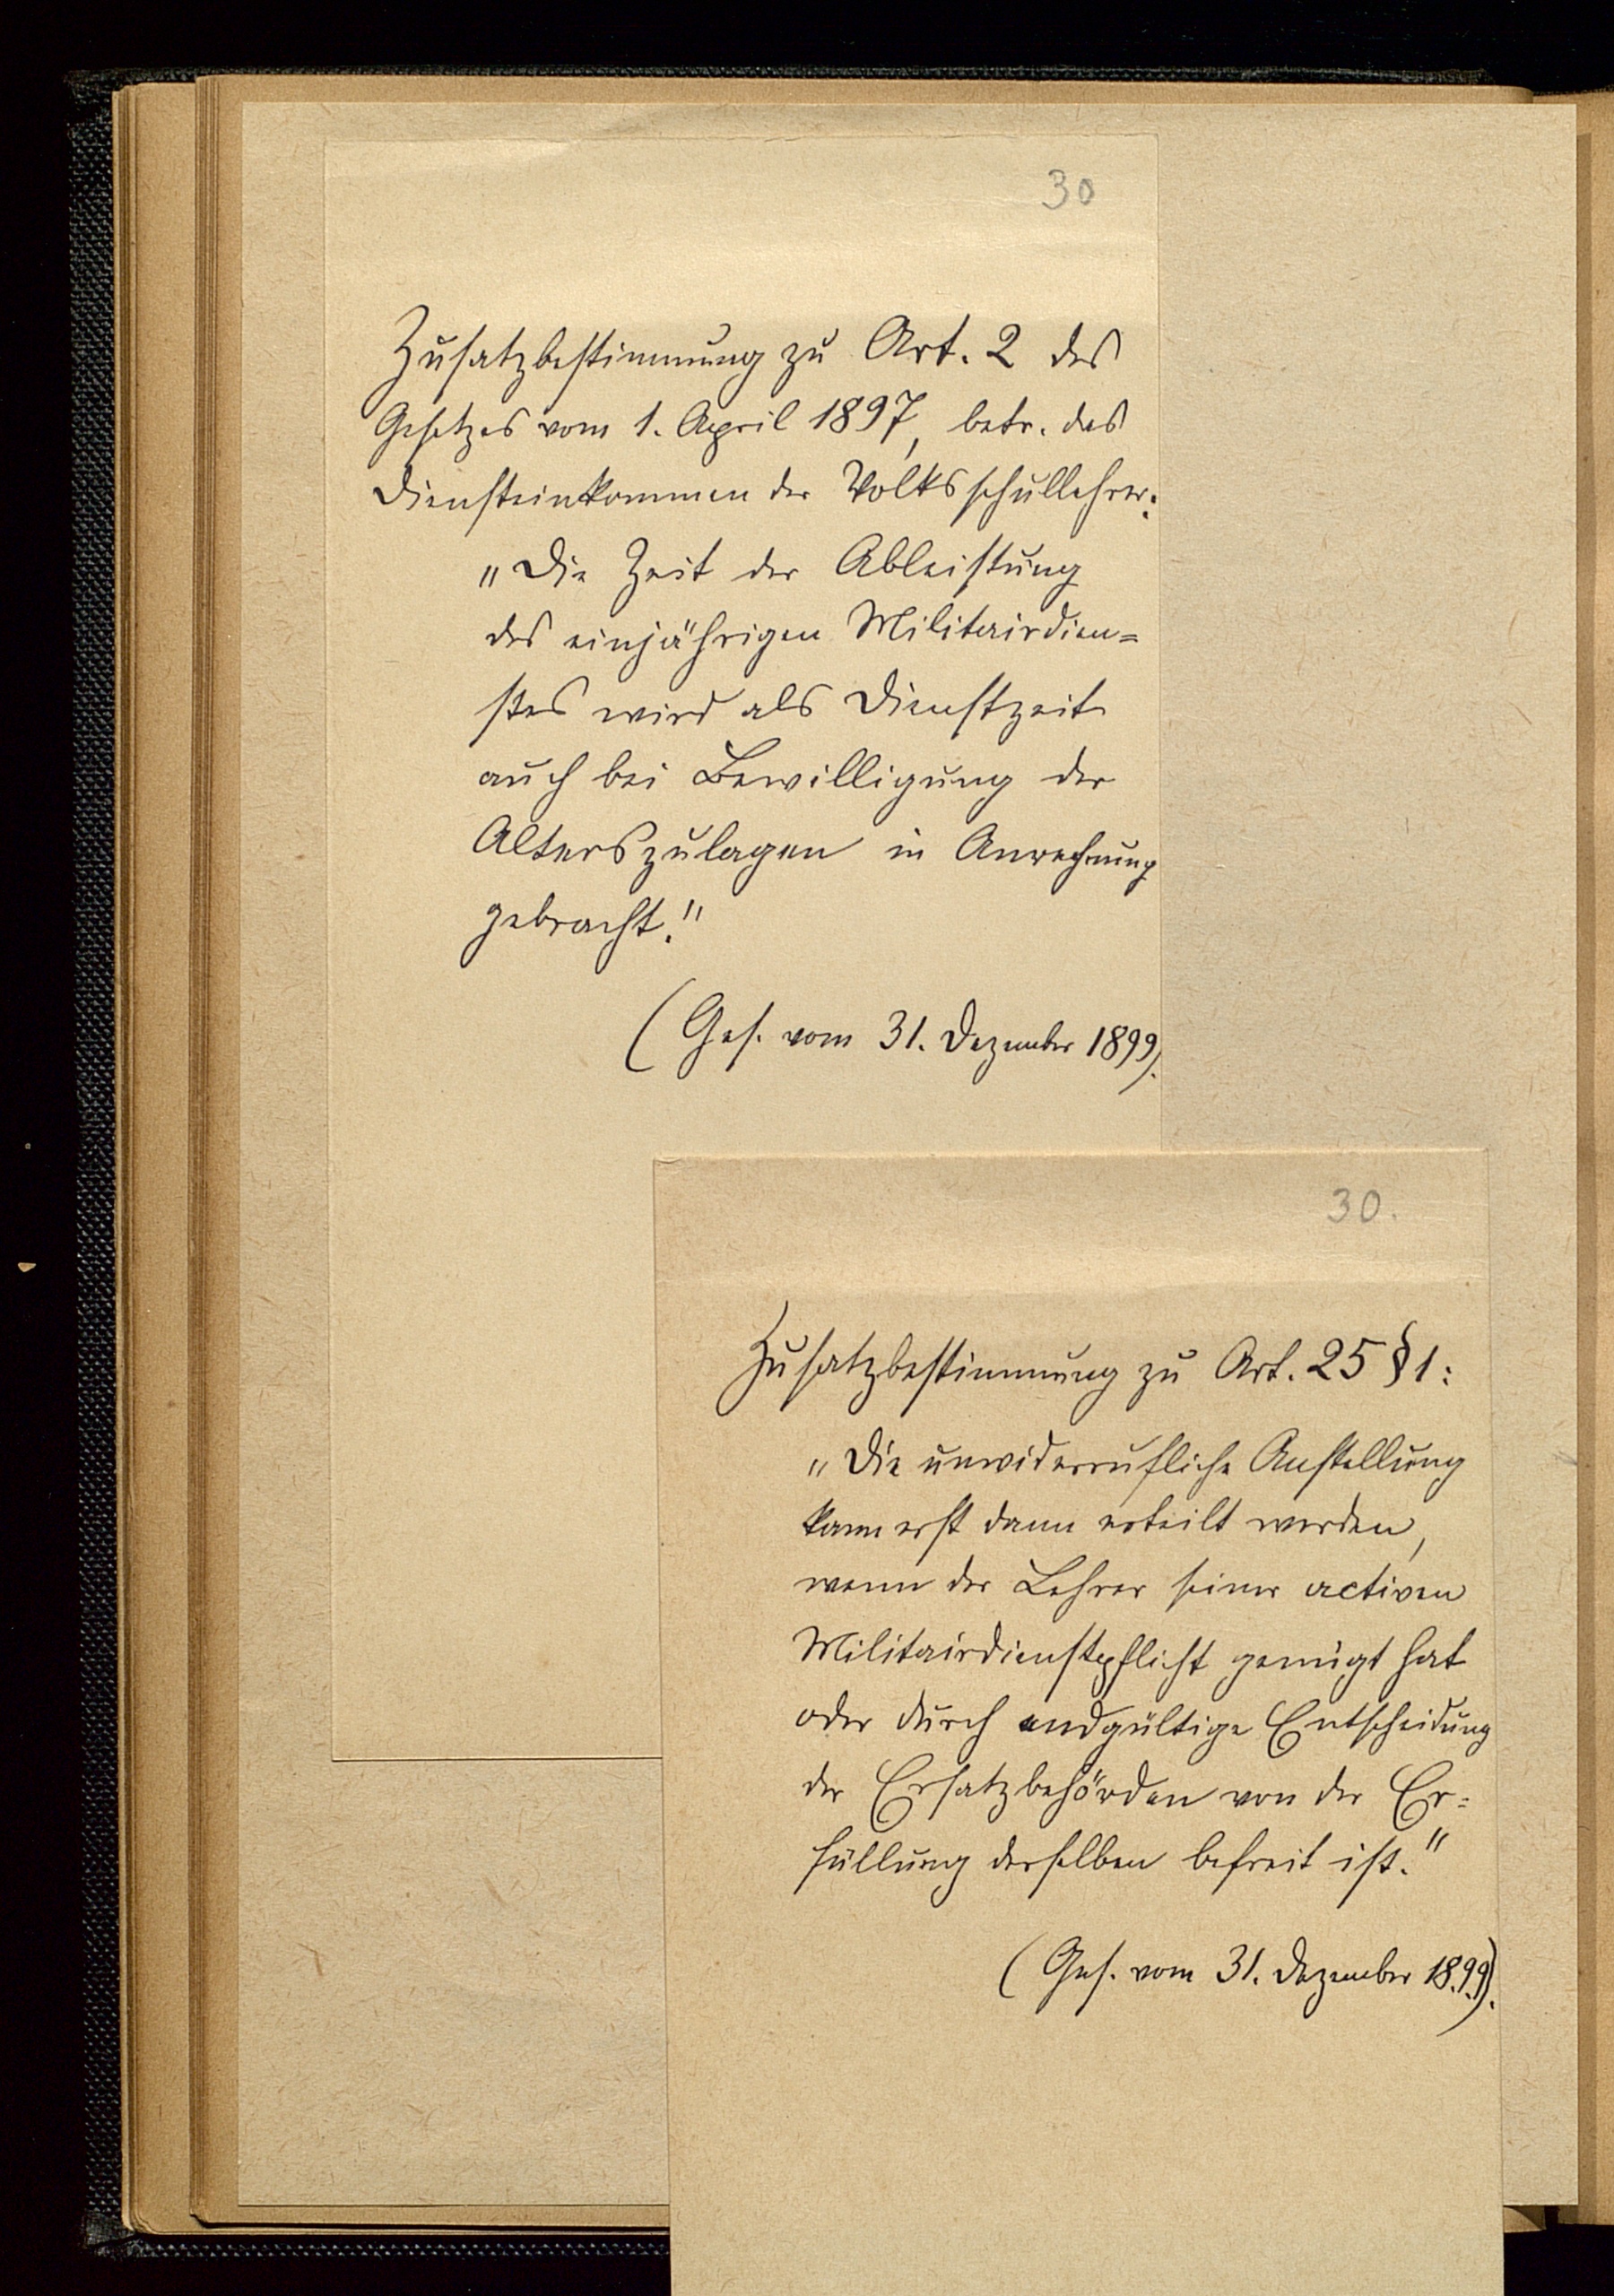 30
Zusatzbestimmung zu Art. 2 des
Gesetzes vom 1. April 1897, betr. das
Diensteinkommen der Volksschullehrer:
„Die Zeit der Ableistung
des einjährigen Militairdien=
stes wird als Dienstzeit
auch bei Bewilligung der
Alterszulagen in Anrechnung
gebracht."
(Ges. vom 31. Dezember 1899).
30.
Zusatzbestimmung zu Art. 25 § 1:
„Die unwiderrufliche Anstellung
kann erst dann erteilt werden,
wenn der Lehrer seiner activen
Militairdienstpflicht genügt hat
oder durch endgültige Entscheidung
der Ersatzbehörden von der Er=
füllung derselben befreit ist."
(Ges. vom 31. Dezember 1899).